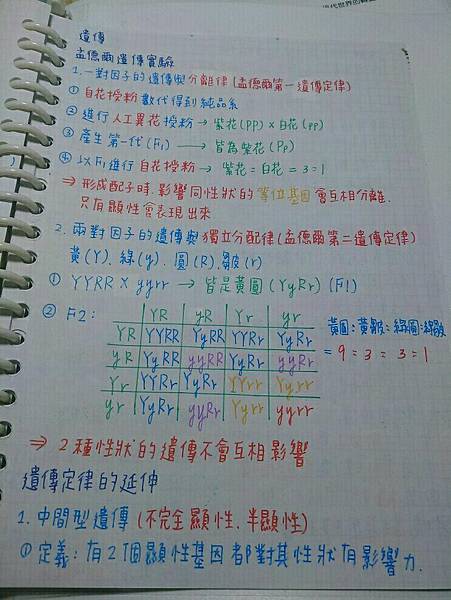 遺傳
孟德爾遺傳實驗
1. 一對因子的遺傳與分離律(孟德爾第一遺傳定律)
① 自花授粉數代得到純品系
② 進行人工異花授粉→紫花(PP)×白花(pp)
③ 產生第一代(F1)→皆為紫花(Pp)
④ 以F1進行自花授粉→紫花:白花=3:1
⇒ 形成配子時,影響同性狀的等位基因會互相分離.
只有顯性會表現出來
2. 兩對因子的遺傳與獨立分配律(孟德爾第二遺傳定律)
黃(Y)、綠(y)、圓(R)、皺(r)
① YYRR×yyrr→皆是黃圓(YyRr)(F1)
② F2:
YR yR Yr yr
YR YYRR YyRR YYRr YyRr
yR YyRR yyRR YyRr yyRr
Yr YYRr YyRr YYrr Yyrr
yr YyRr yyRr Yyrr yyrr
黃圓:黃皺:綠圓:綠皺
=9:3:3:1
⇒ 2種性狀的遺傳不會互相影響
遺傳定律的延伸
1. 中間型遺傳(不完全顯性、半顯性)
①定義:有2個顯性基因都對其性狀有影響力.